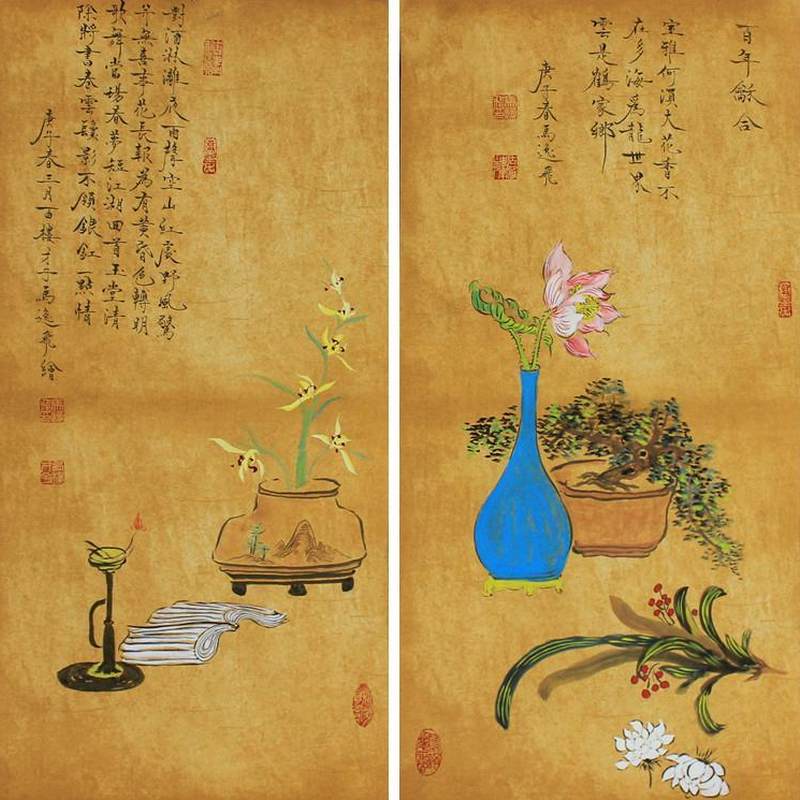 百年龢合
室雅何須大花香不
在多海為龍世界
雲是鶴家鄉
庚子春馬逸飛
對酒淋灕夜雨聲空山紅處野風鶯
并無喜事花長報為有黃昏色轉明
歌舞當場春夢短江湖回首玉堂清
除將書卷雲影不領銀釭一點情
庚子春三月百樓才子馬逸飛繪